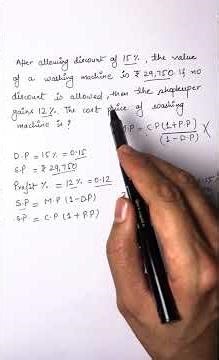 After allowing discount of 15%, the value
of a washing machine is ₹ 29,750 If no
discount is allowed, then the shopkeeper
gains 12%. The cost price of washing
machine is?
M.P = C.P(1+P.P)
(1-D.P)
D.P = 15% = 0.15
S.P = ₹ 29,750
Profit % = 12% = 0.12
S.P = M.P (1-D.P)
S.P = C.P (1+P.P)